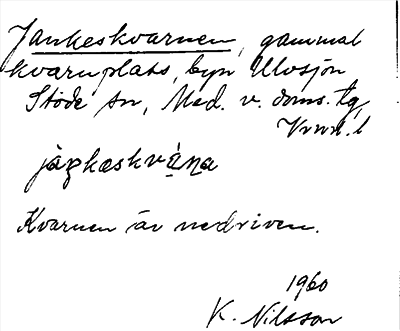 Jankeskvarnen, gammal
kvarnplats, byn Ulvsjön
Stöde sn, Med. v. doms. tg,
jàŋkæskvæ̀ɳa
Kvarnen är nedriven.
1960
K. Nilsson